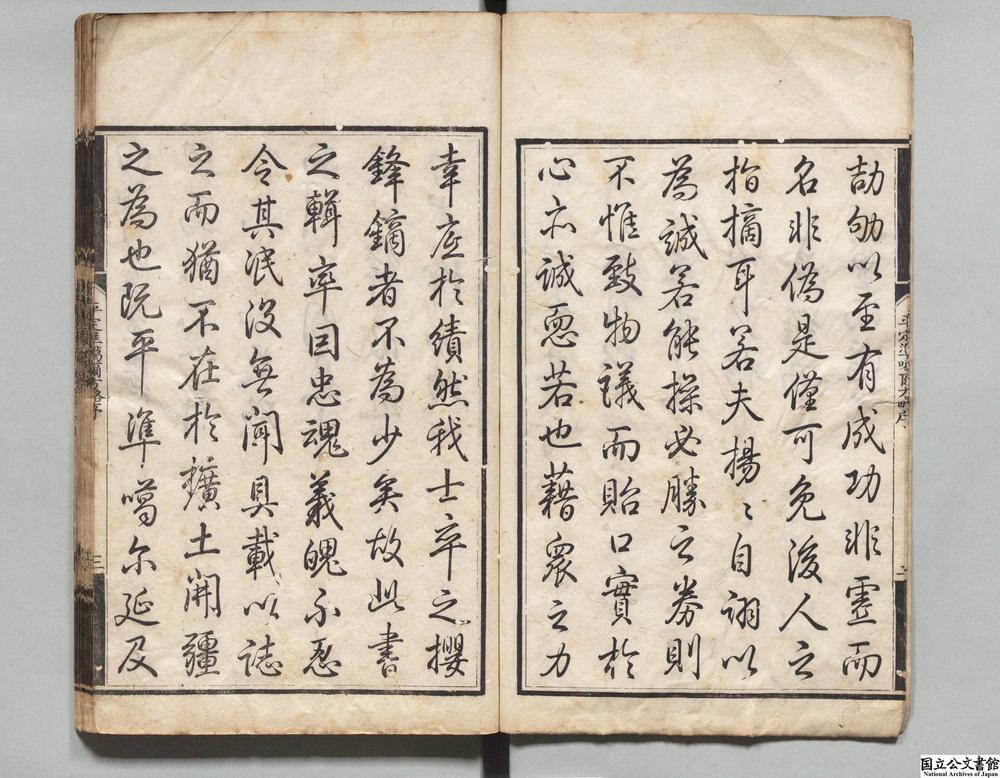 劼劬以至有成功非虛而
名非偽是僅可免後人之
指摘耳若夫揚〻自詡以
為誠若能操必勝之券則
不惟致物議而貽口實於
心亦誠恧若也藉眾之力
幸底於績然我士卒之攖
鋒鏑者不為少矣故此書
之輯率因忠魂義魄不忍
令其泯沒無聞具載以誌
之而猶不在於擴土開疆
之為也既平準噶尔延及
平定準噶爾方略序
国立公文書館
National Archives of Japan